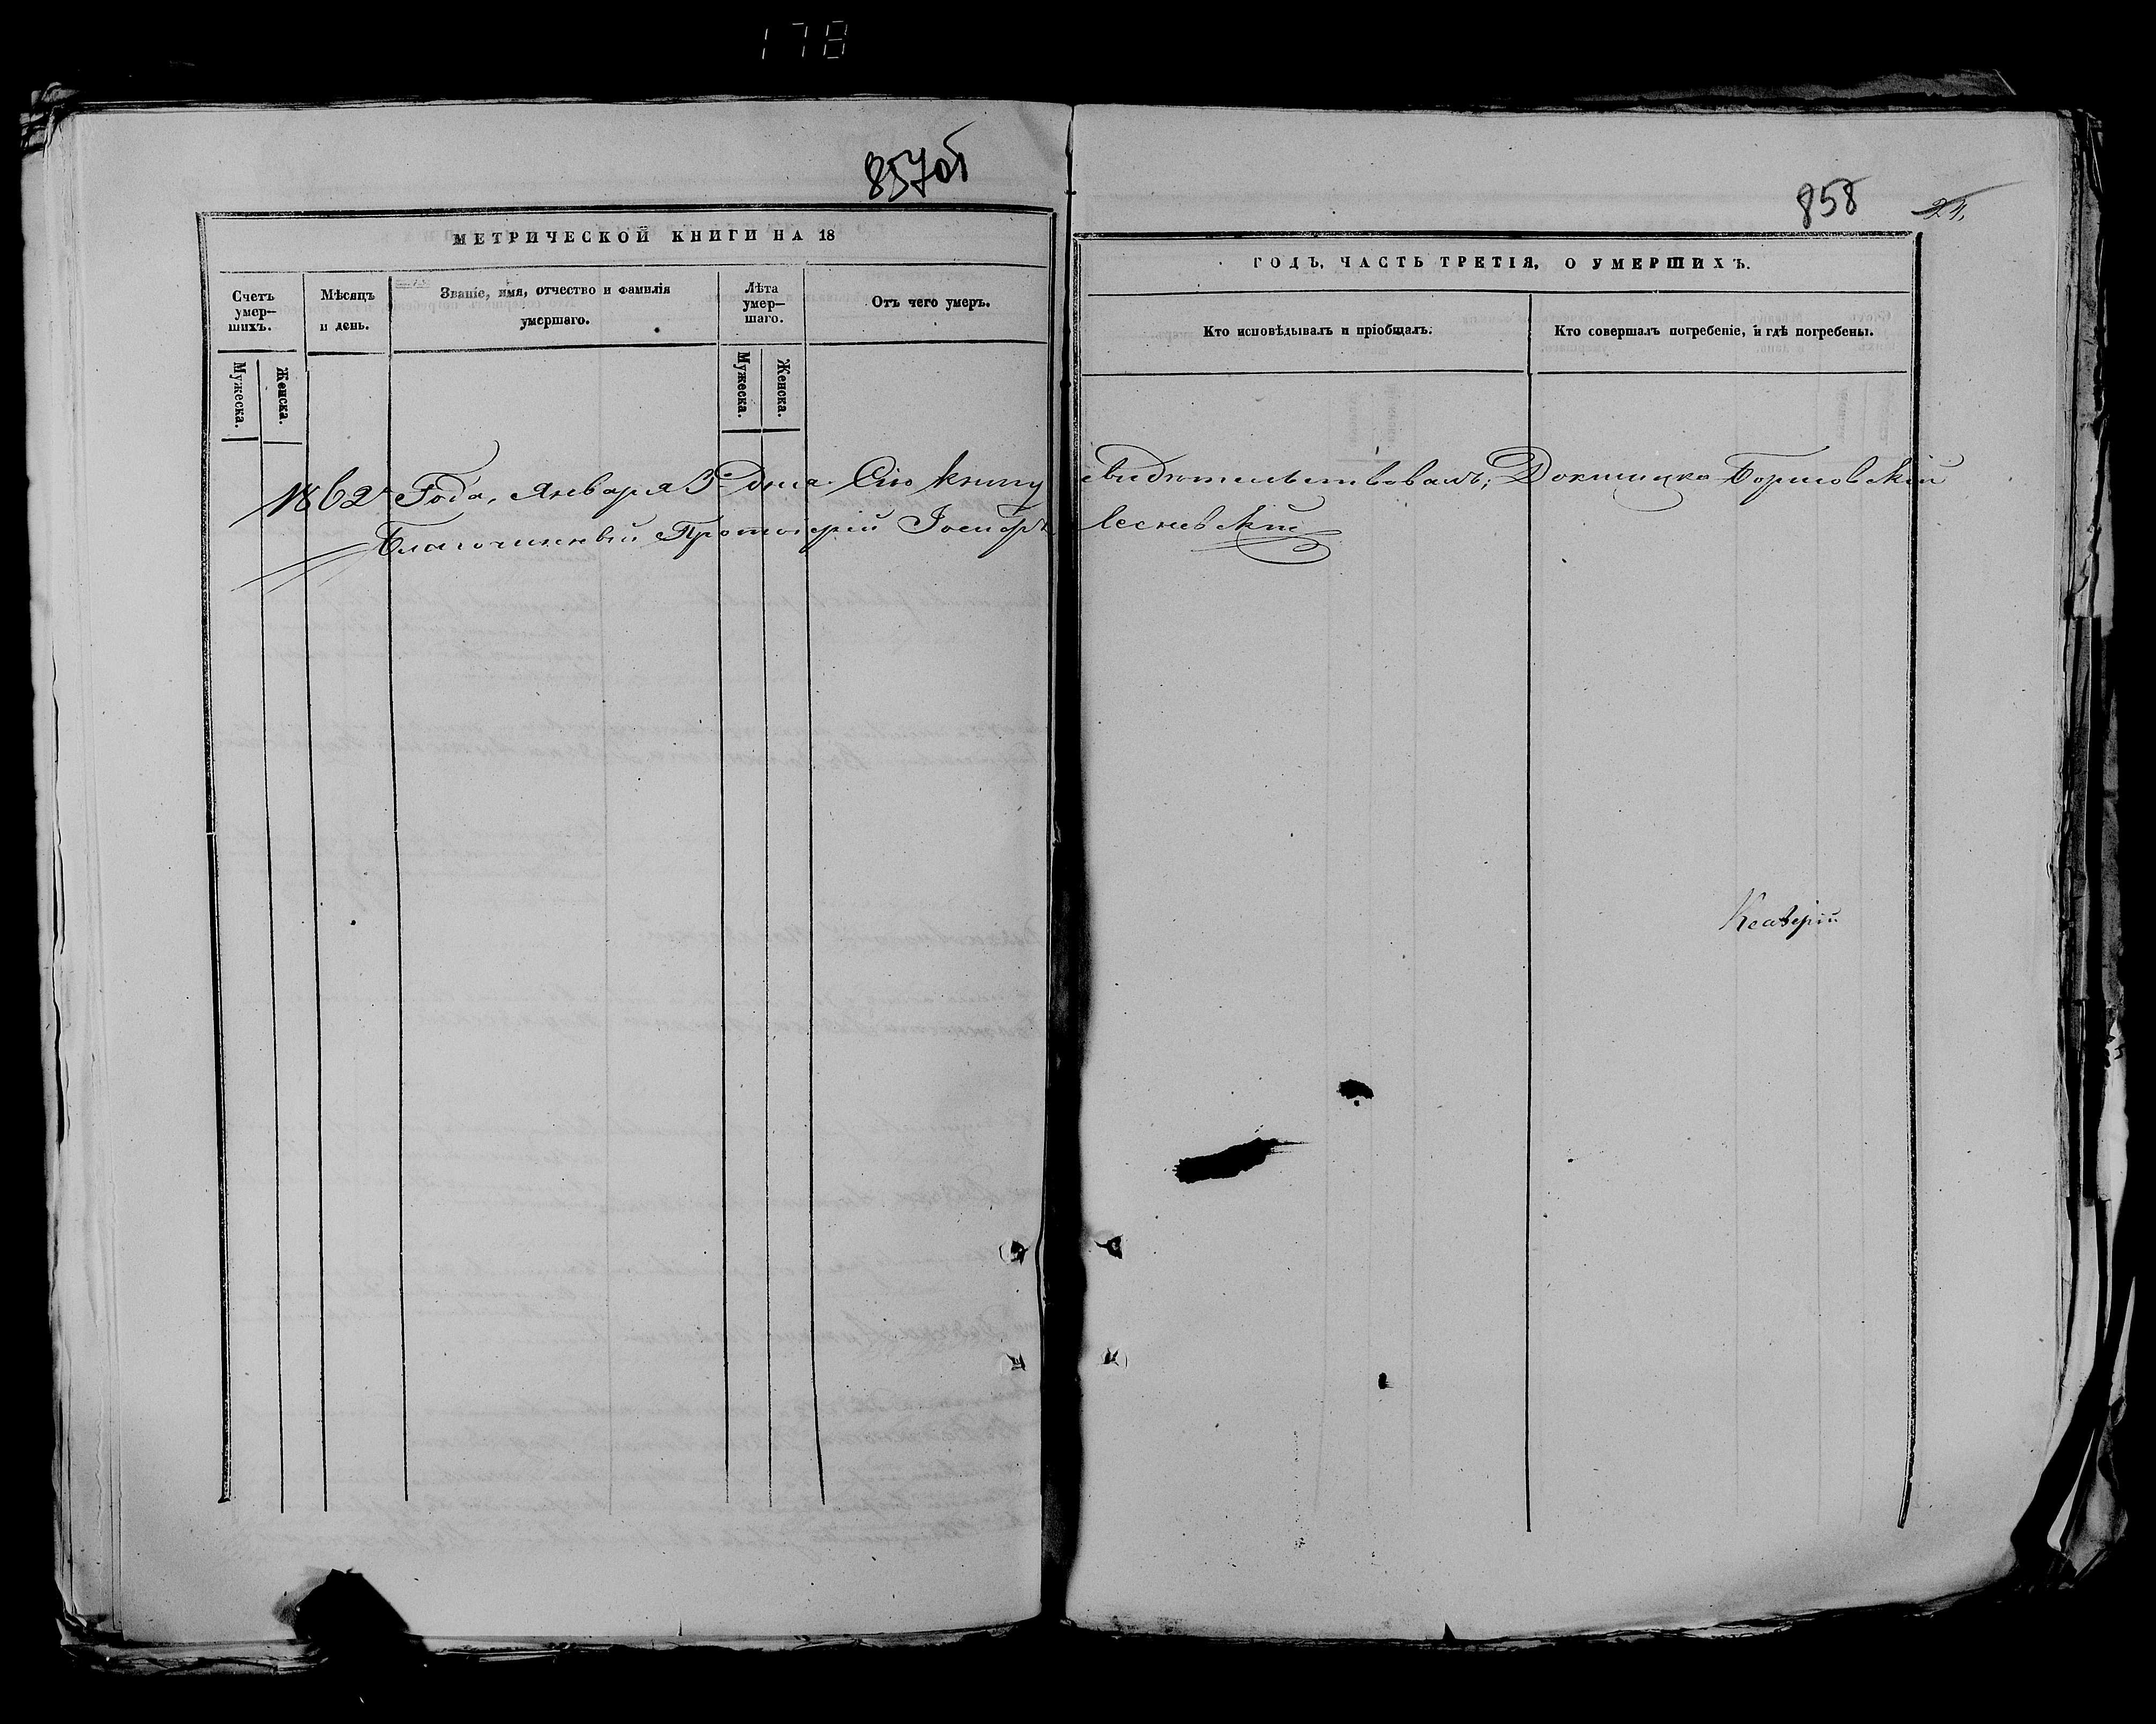 178
857об
МЕТРИЧЕСКОЙ КНИГИ НА 18
Счетъ умер-шихъ.
Мѣсяцъ и день.
Званіе, имя, отчество и фамилія умершаго.
Лѣта умер-шаго.
Отъ чего умеръ.
Мужеска.
Женска.
Мужеска.
Женска.
858
24,
ГОДЪ, ЧАСТЬ ТРЕТІЯ, О УМЕРШИХЪ.
Кто исповѣдывалъ и пріобщалъ.
Кто совершалъ погребеніе, и гдѣ погребены.
1862 Года, Января 3 дня. Сію книгу свидѣтельствовалъ; Докшицко Борисовскій
Благочинный Протоіерій Іосифъ Лесневскій
Ксаверій